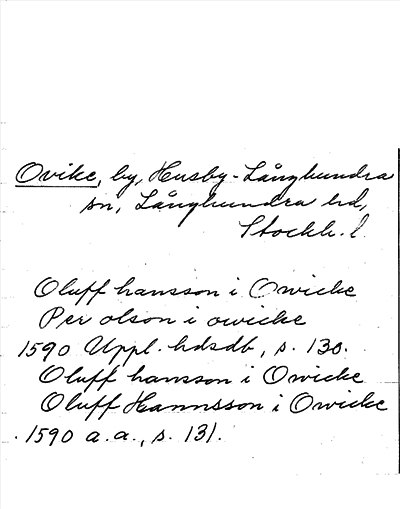 Ovike, by, Husby-Långhundra
sn, Långhundra hd,
Stockh. l.
Oluff hansson i Owicke
Per olson i owicke
1590 Uppl. hdsdb, s. 130.
Oluff hansson i Owicke
Oluff Hannsson i Owicke
1590 a.a., s. 131.